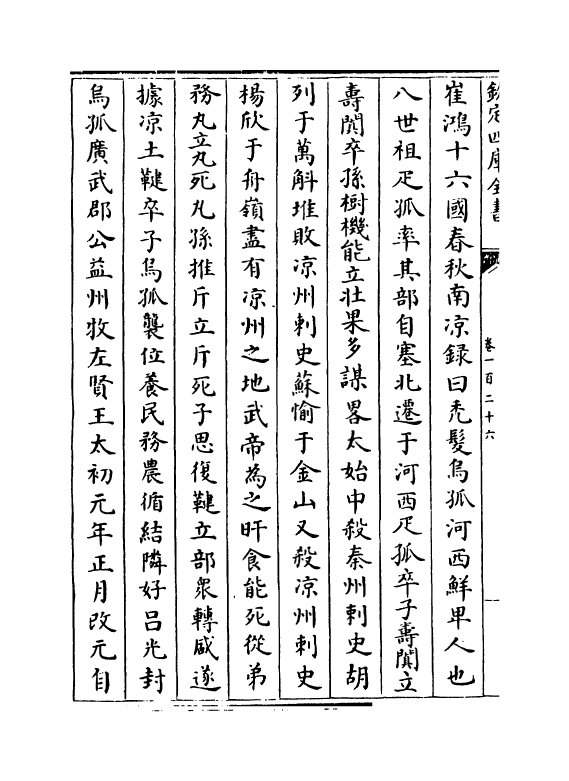 欽定四庫全書
卷一百二十六
崔鴻十六國春秋南凉録曰禿髮烏孤河西鮮卑人也
八世祖疋孤率其部自塞北遷于河西疋孤卒子壽闐立
壽闐卒孫樹機能立壯果多謀畧太始中殺秦州刺史胡
列于萬斛堆敗凉州刺史蘇愉于金山又殺凉州刺史
楊欣于丹嶺盡有凉州之地武帝為之旰食能死從弟
務丸立丸死丸孫推斤立斤死子思復鞬立部衆轉盛遂
據凉土鞬卒子烏孤襲位養民務農循結隣好吕光封
烏孤廣武郡公益州牧左賢王太初元年正月改元自